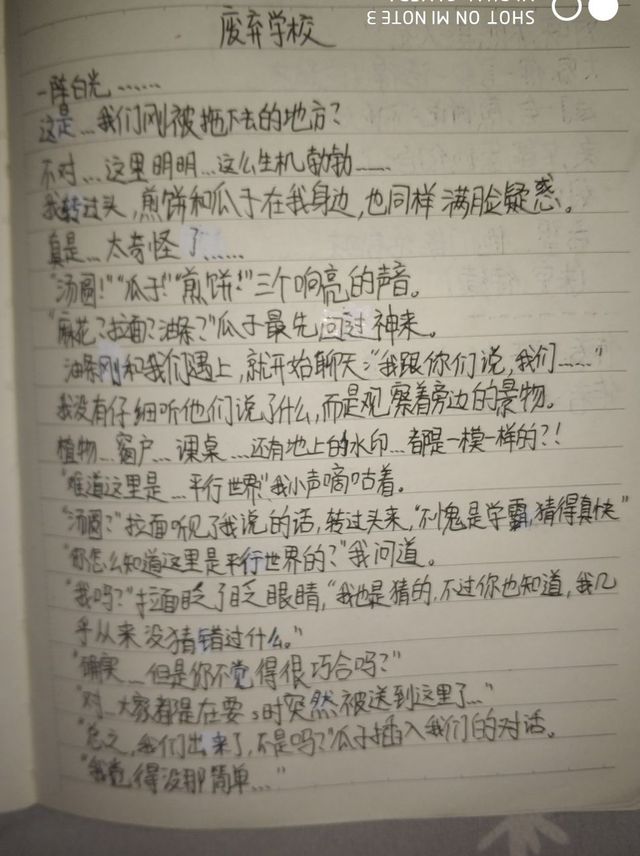 SHOT ON MI NOTE 3
废弃学校
一阵白光……
这是…我们刚被拖下去的地方？
不对…这里明明…这么生机勃勃……
我转过头，煎饼和瓜子在我身边，也同样满脸疑惑。
真是…太奇怪了……
“汤圆！”“瓜子！”“煎饼！”三个响亮的声音。
“麻花？拉面？油条？”瓜子最先回过神来。
油条刚和我们遇上，就开始聊天：“我跟你们说，我们……”
我没有仔细听他们说了什么，而是观察着旁边的景物。
植物…窗户…课桌…还有地上的水印…都是一模一样的？！
“难道这里是…平行世界”我小声嘀咕着。
“汤圆？”拉面听见了我说的话，转过头来，“不愧是学霸，猜得真快”
“你怎么知道这里是平行世界的？”我问道。
“我吗？”拉面眨了眨眼睛，“我也是猜的，不过你也知道，我几
乎从来没猜错过什么。”
“确实…但是你不觉得很巧合吗？”
“对…大家都是在要 时突然被送到这里了…”
“总之，我们出来了，不是吗？”瓜子插入我们的对话。
“我觉得没那简单…”